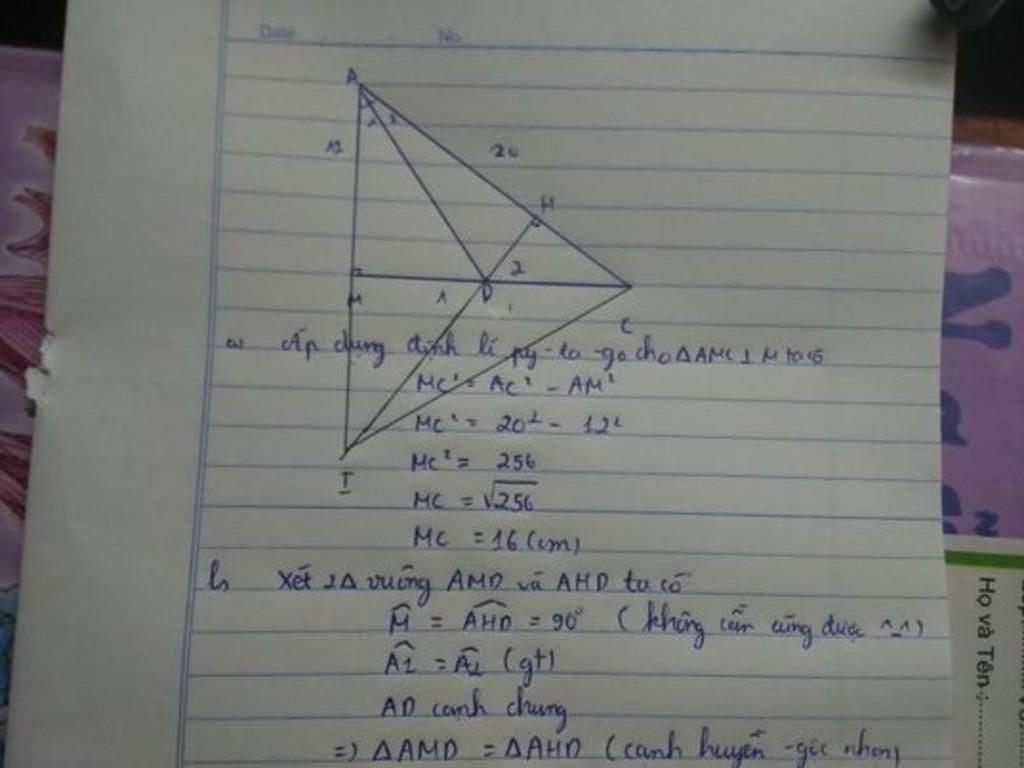 Date No.
A
1 2
12
20
H
2
M 1 D
C
a, Áp dụng định lí py-ta-go cho ΔAMC ⊥ M ta có
MC² = AC² - AM²
MC² = 20² - 12²
MC² = 256
MC = √256
MC = 16 (cm)
I
b, Xét 2Δ vuông AMD và AHD ta có
M̂ = AHD̂ = 90° (không cần cũng được ^_^)
Â1 = Â2 (gt)
AD cạnh chung
=) ΔAMD = ΔAHD (cạnh huyền -góc nhọn)
Họ và Tên:
N